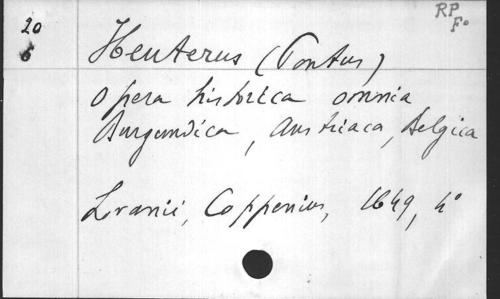 RP
F°
20
6
Heuterus (Pontus)
Opera historica omnia
Burgundica, Austriaca, Belgica
Lvanii, Coppenius, 1649, 4°